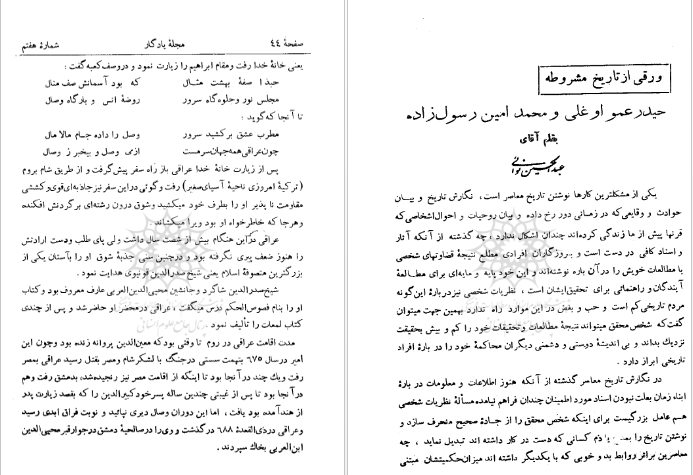 ورقی از تاریخ مشروطه
حیدر عمو اوغلی و محمد امین رسول زاده
بقلم آقای
عبدالحسین نوائی
یکی از مشکلترین کارها نوشتن تاریخ معاصر است، نگارش تاریخ و بیان
حوادث و وقایعی که در زمانی دور رخ داده و بیان روحیات و احوال اشخاصی که
قرنها پیش از ما زندگی کرده‌اند چندان اشکال ندارد، چه گذشته از آنکه آثار
و اسناد کافی در دست است و بروزگاران افرادی مطلع نتیجهٔ قضاوتهای شخصی
یا مطالعات خویش را در آن باره نوشته‌اند و این خود پایه و مایه‌ای برای مطالعهٔ
آیندگان و راهنمائی برای تحقیق ایشان است، نظریات شخصی نیز در بارهٔ این گونه
مردم تاریخی کم است و حب و بغض در این موارد راه ندارد بهمین جهت میتوان
گفت که شخص محقق میتواند نتیجهٔ مطالعات و تحقیقات خود را کم و بیش بحقیقت
نزدیک بداند و بی اندیشهٔ دوستی و دشمنی دیگران محاکمهٔ خود را در بارهٔ افراد
تاریخی ابراز دارد.
در نگارش تاریخ معاصر گذشته از آنکه هنوز اطلاعات و معلومات در بارهٔ
ابناء زمان بعلت نبودن اسناد مورد اطمینان چندان فراهم نیامده مسألهٔ نظریات شخصی
هم عامل بزرگیست برای اینکه شخص محقق را از جادهٔ صحیح منحرف سازد و
نوشتن تاریخ را کسانی که دست در کار داشته اند تبدیل نماید، چه
معاصرین بر اثر روابط بد و خوبی که با یکدیگر داشته اند میزان حکمیتشان مبتنی
صفحهٔ ٤٤
مجلهٔ یادگار
شمارهٔ هفتم
یعنی خانهٔ خدا رفت و مقام ابراهیم را زیارت نمود و در وصف کعبه گفت:
حبذا صفهٔ بهشت مثال که بود آسمانش صف منال
مجلس نور و جلوه گاه سرور روضهٔ انس و بارگاه وصال
تا آنجا که گوید:
مطرب عشق برکشید سرور وصل را داده جام مالامال
چون عراقی همه جهان سرمست ازمی وصل و بیخبر ز وصال
پس از زیارت خانهٔ خدا عراقی باز راه سفر پیش گرفت و از طریق شام بروم
(ترکیهٔ امروزی ناحیهٔ آسیای صغیر) رفت و گوئی در این سفر نیز جاذبه‌ای قوی و کششی
مقاومت نا پذیر او را بطرف خود میکشید و شوق درون رشته‌ای بر گردنش افکنده،
و هر جا که خاطرخواه او بود ویرا میکشاند.
عراقی در این هنگام بیش از شصت سال داشت ولی پای طلب و دست ارادتش
را هنوز ضعف پیری نگرفته بود و در چنین سنی جذبهٔ شوق او را بآستان یکی از
بزرگترین متصوفهٔ اسلام یعنی شیخ صدرالدین قونیوی هدایت نمود.
شیخ صدرالدین شاگرد و جانشین محیی‌الدین العربی عارف معروف بود و کتاب
او را بنام فصوص الحکم درس میگفت، عراقی در محضر او حاضر شد و پس از چندی
کتاب لمعات را تألیف نمود
مدت اقامت عراقی در روم تا وقتی بود که معین‌الدین پروانه زنده بود و چون این
امیر در سال ٦٧٥ بتهمت سستی در جنگ با لشکر شام و مصر بقتل رسید عراقی بمصر
رفت و یک چند در آنجا بود تا اینکه از اقامت مصر نیز رنجیده شد، بدمشق رفت و هم
در آنجا بود تا پس از غیبتی چندین ساله پسر خود کبیرالدین را که بقصد زیارت پدر
از هند آمده بود یافت، اما این دوران وصال دیری نپائید و نوبت فراق ابدی رسید
و عراقی در ذی القعدهٔ ٦٨٨ در گذشت و وی را در صالحیهٔ دمشق در جوار قبر محیی‌الدین
ابن العربی بخاک سپردند.